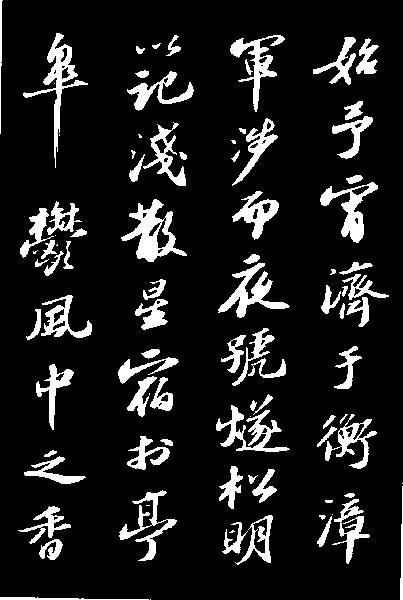 始予宵濟于衡漳
軍涉而夜號燧松明
以記淺散星宿於亭
皐鬱風中之香